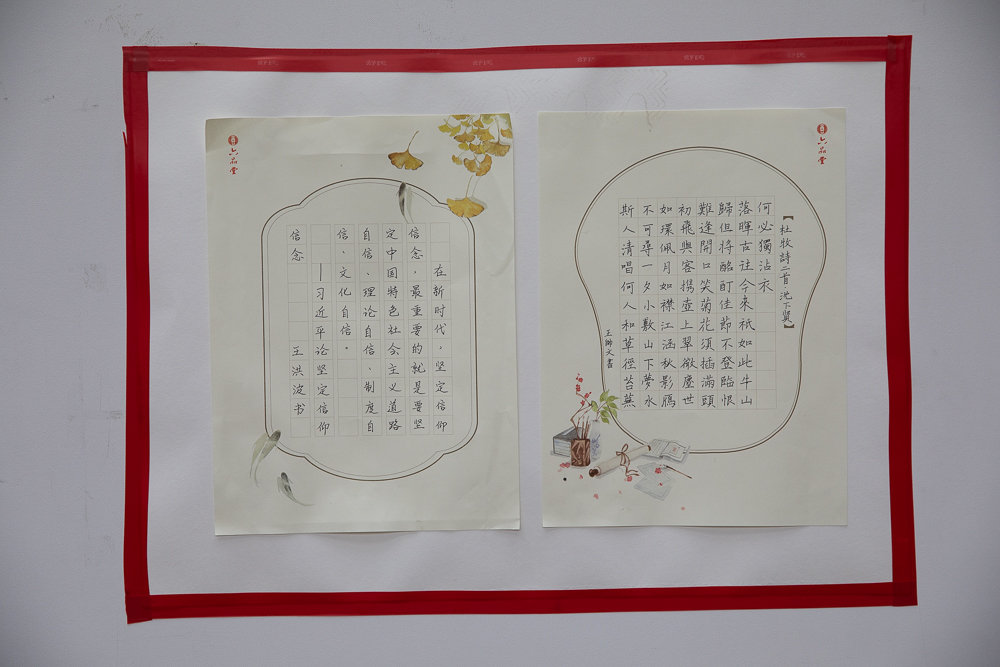 六品堂
在新时代，坚定信仰
信念，最重要的就是要坚
定中国特色社会主义道路
自信、理论自信、制度自
信、文化自信。
——习近平论坚定信仰
信念 王洪波书
六品堂
【杜牧詩二首 沈下賢】
斯人清唱何人和草徑苔蕪
不可尋一夕小敷山下夢水
如環佩月如襟江涵秋影鴈
初飛與客携壺上翠微塵世
難逢開口笑菊花須插滿頭
歸但將酩酊佳節不登臨恨
落暉古往今來衹如此牛山
何必獨沾衣